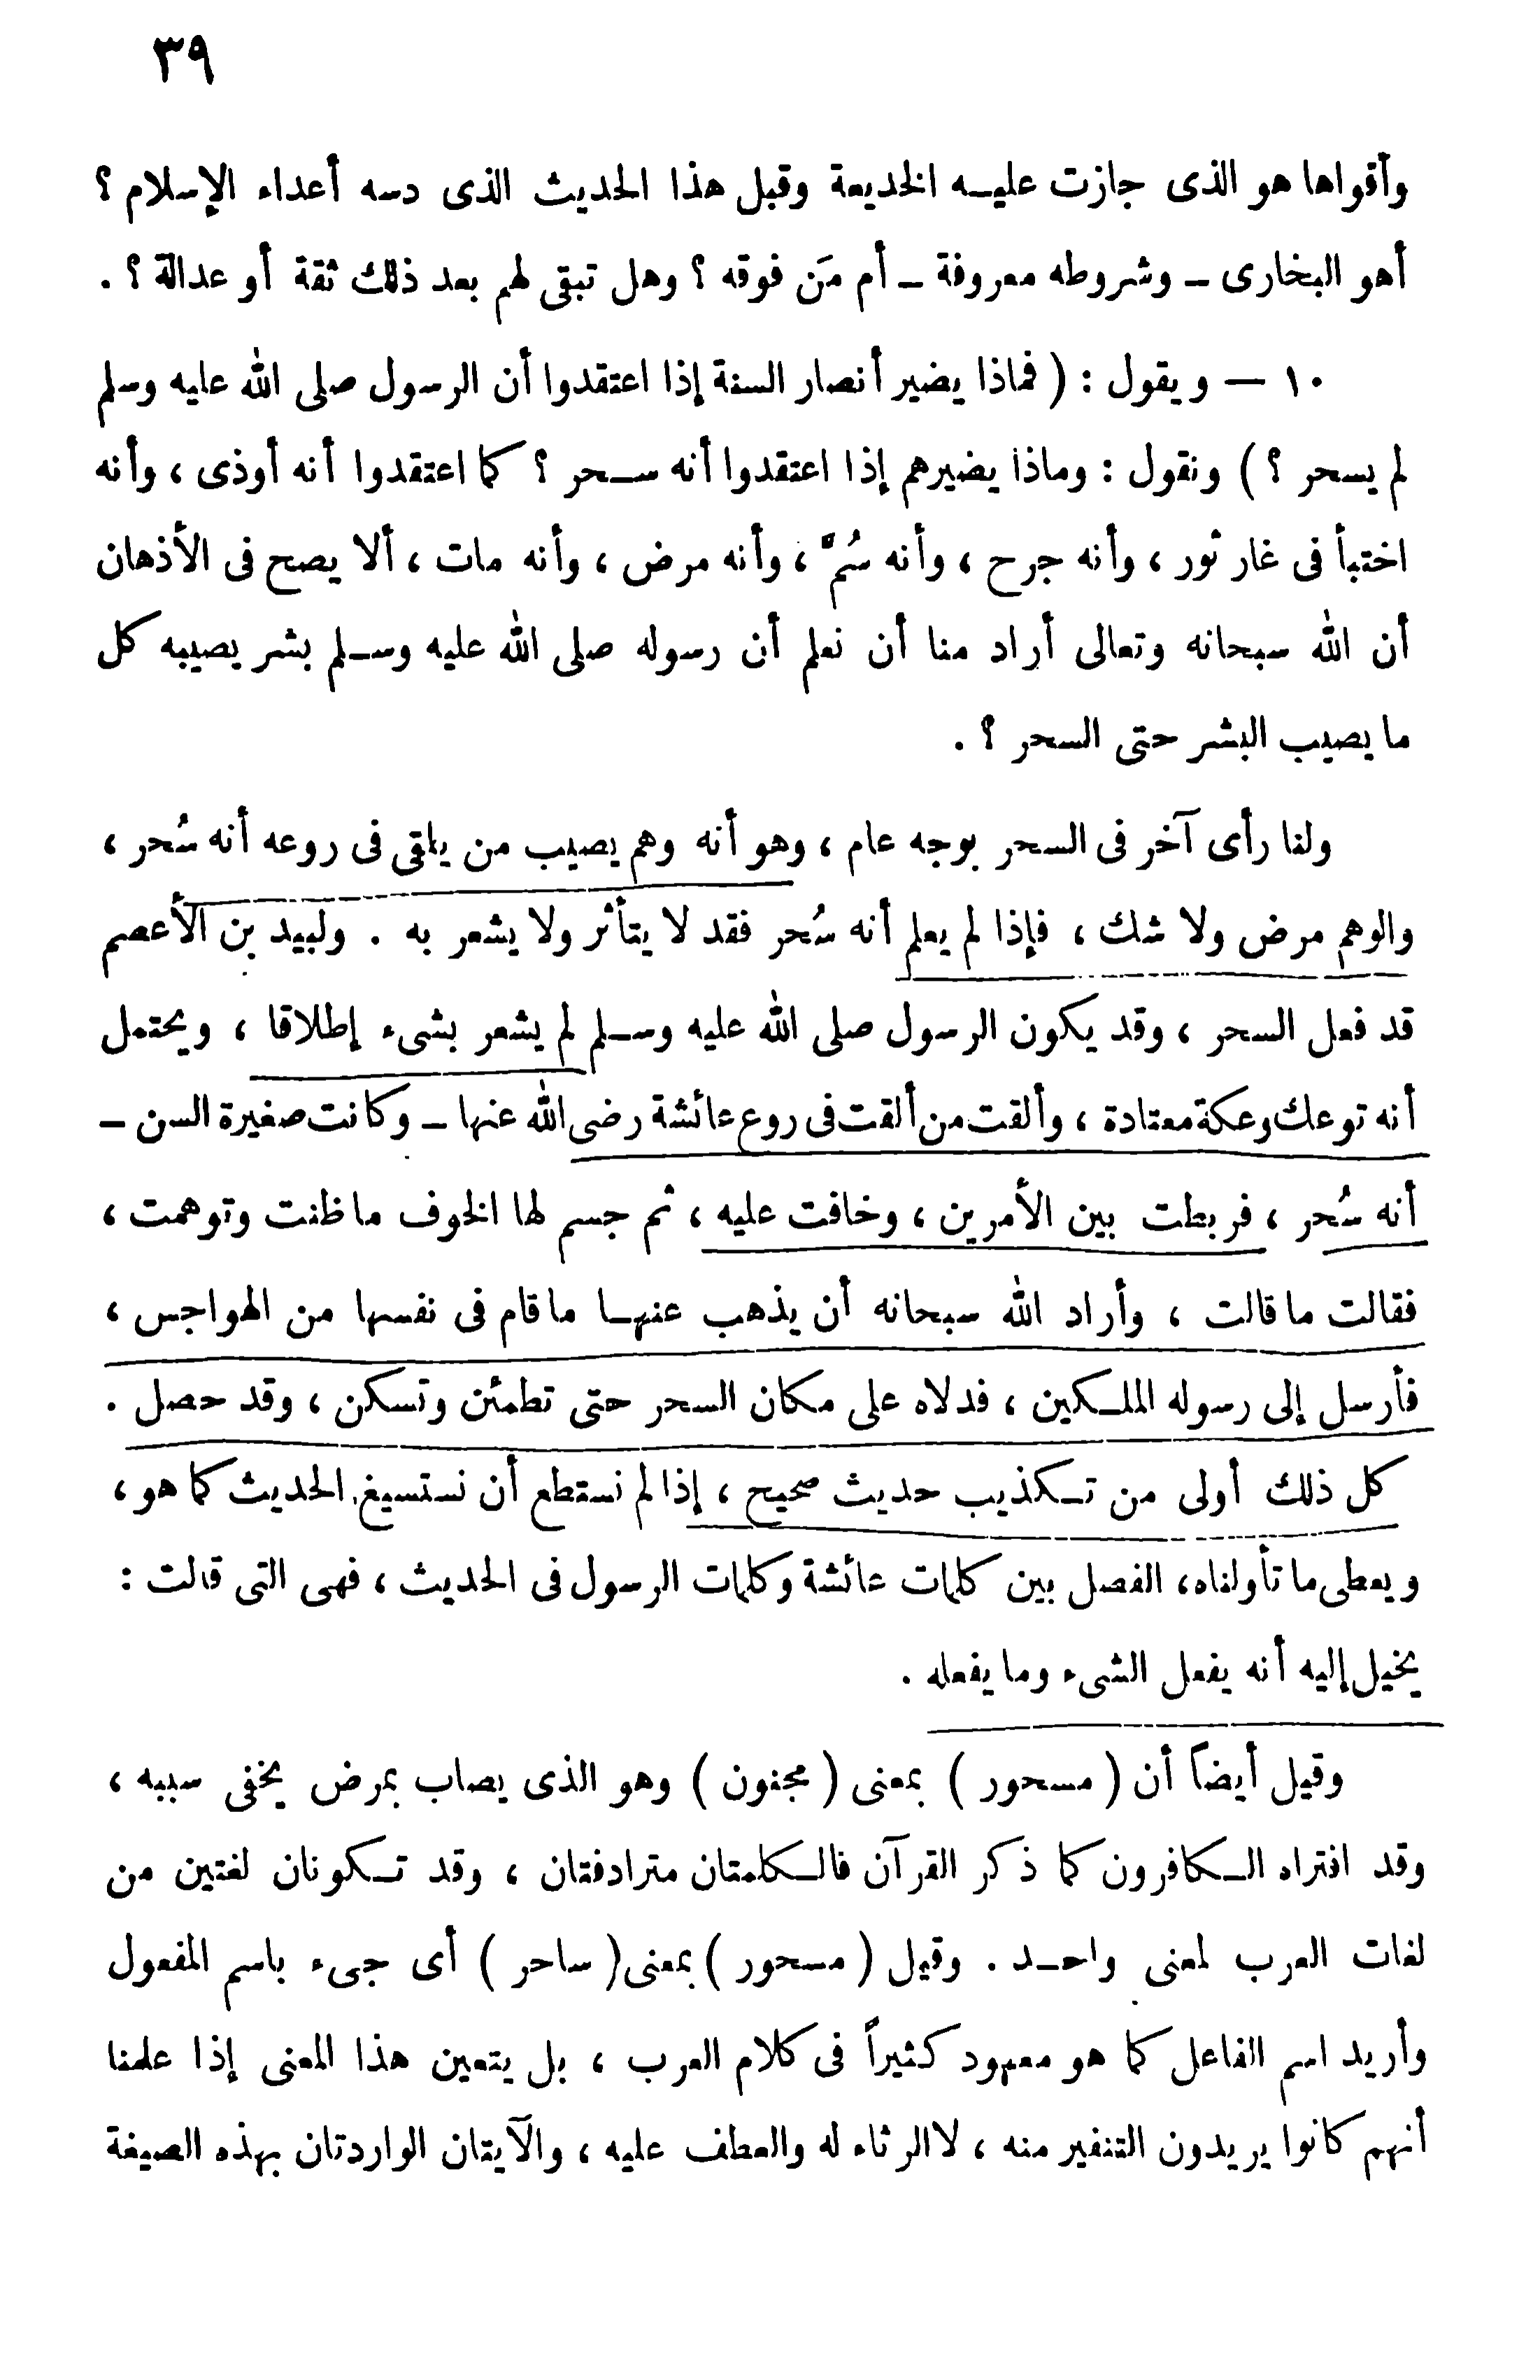 ٣٩
وأقواها هو الذى جازت عليه الخديعة وقبل هذا الحديث الذى دسه أعداء الإسلام ؟
أهو البخارى – وشروطه معروفة – أم مَن فوقه ؟ وهل تبقى لهم بعد ذلك ثقة أو عدالة ؟ .
١٠ — ويقول : ( فماذا يضير أنصار السنة إذا اعتقدوا أن الرسول صلى الله عليه وسلم
لم يسحر ؟ ) ونقول : وماذا يضيرهم إذا اعتقدوا أنه سحر ؟ كما اعتقدوا أنه أوذى ، وأنه
اختبأ فى غار ثور ، وأنه جرح ، وأنه سُمَّ ، وأنه مرض ، وأنه مات ، ألا يصح فى الأذهان
أن الله سبحانه وتعالى أراد منا أن نعلم أن رسوله صلى الله عليه وسلم بشر يصيبه كل
ما يصيب البشر حتى السحر ؟ .
ولنا رأى آخر فى السحر بوجه عام ، وهو أنه وهم يصيب من يلقى فى روعه أنه سُحر ،
والوهم مرض ولا شك ، فإذا لم يعلم أنه سُحر فقد لا يتأثر ولا يشعر به . ولبيد بن الأعصم
قد فعل السحر ، وقد يكون الرسول صلى الله عليه وسلم لم يشعر بشىء إطلاقا ، ويحتمل
أنه توعك وعكة معتادة ، وألقت من ألقت فى روع عائشة رضى الله عنها – وكانت صغيرة السن –
أنه سُحر ، فربطت بين الأمرين ، وخافت عليه ، ثم جسم لها الخوف ما ظنت وتوهمت ،
فقالت ما قالت ، وأراد الله سبحانه أن يذهب عنها ما قام فى نفسها من الهواجس ،
فأرسل إلى رسوله الملكين ، فدلاه على مكان السحر حتى تطمئن وتسكن ، وقد حصل .
كل ذلك أولى من تكذيب حديث صحيح ، إذا لم نستطع أن نستسيغ الحديث كما هو ،
ويعطى ما تأولناه ، الفصل بين كلمات عائشة وكلمات الرسول فى الحديث ، فهى التى قالت :
يخيل إليه أنه يفعل الشىء وما يفعله .
وقيل أيضاً أن ( مسحور ) بمعنى ( مجنون ) وهو الذى يصاب بمرض يخفى سببه ،
وقد افتراه الكافرون كما ذكر القرآن فالكلمتان مترادفتان ، وقد تكونان لغتين من
لغات العرب لمعنى واحد . وقيل ( مسحور ) بمعنى ( ساحر ) أى جىء باسم المفعول
وأريد اسم الفاعل كما هو معهود كثيراً فى كلام العرب ، بل يتعين هذا المعنى إذا علمنا
أنهم كانوا يريدون التنفير منه ، لا الرثاء له والعطف عليه ، والآيتان الواردتان بهذه الصيغة